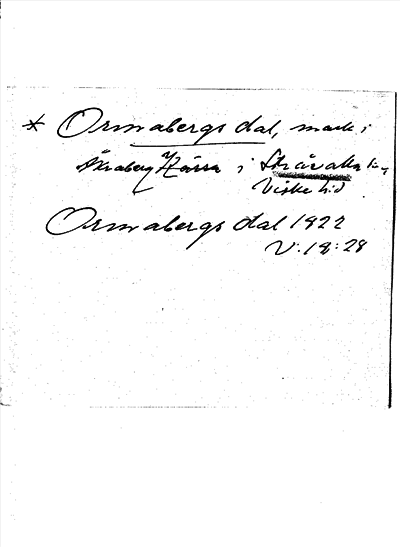 * Ormabergs dal, mark i
Åkraberg Kärra i Stråvalla sn,
Viske hd.
Ormabergs dal 1922
V:18:28